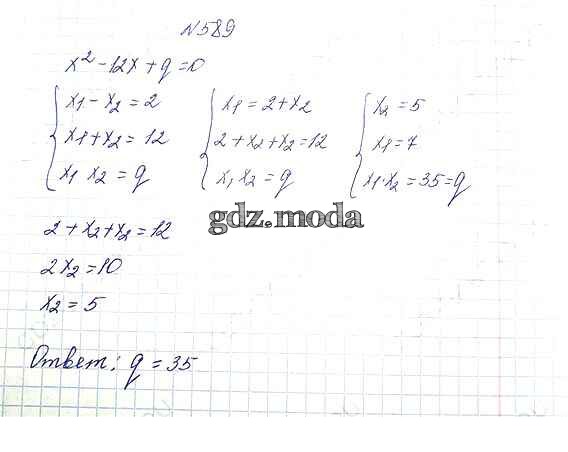 N589
x² - 12x + q = 0
x1 - x2 = 2
x1 + x2 = 12
x1 x2 = q
x1 = 2 + x2
2 + x2 + x2 = 12
x1 x2 = q
x2 = 5
x1 = 7
x1·x2 = 35 = q
gdz.moda
2 + x2 + x2 = 12
2x2 = 10
x2 = 5
Ответ: q = 35